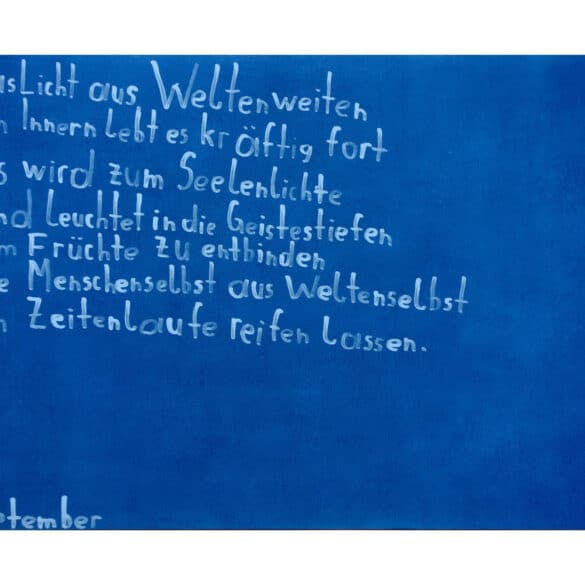 asLicht aus Weltenweiten
n Innern Lebt es kräftig fort
s wird zum Seelenlichte
nd Leuchtet in die Geistestiefen
m Früchte zu entbinden
e Menschenselbst aus Weltenselbst
n Zeitenlaufe reifen lassen.
ptember